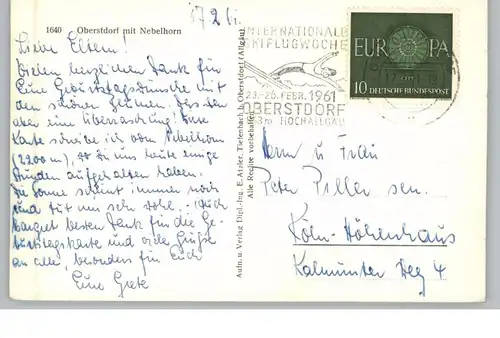 17.2.61.
1640 Oberstdorf mit Nebelhorn
Liebe Eltern!
Vielen herzlichen Dank für
Eure Geburtstagswünsche mit
den schönen Blumen. Das war
aber eine Überraschung! Diese
Karte schreibe ich vom Nebelhorn
(2200 m), wo wir uns heute einige
Stunden aufgehalten haben.
Die Sonne scheint immer noch
und tut uns sehr wohl. Auch
Margret besten Dank für die Ge-
burtstagskarte und viele Grüße
an alle, besonders für Euch
Eure Grete
Aufn. u. Verlag Dipl.-Ing. E. Atzler, Tiefenbach b. Oberstdorf (Allgäu)
Alle Rechte vorbehalten
INTERNATIONALE
SKIFLUGWOCHE
23.-26. FEBR. 1961
OBERSTDORF
3m HOCHALLGÄU
EUROPA
10 DEUTSCHE BUNDESPOST
Herrn u. Frau
Peter Piller sen.
Köln-Höhenhaus
Kalmünter Weg 4